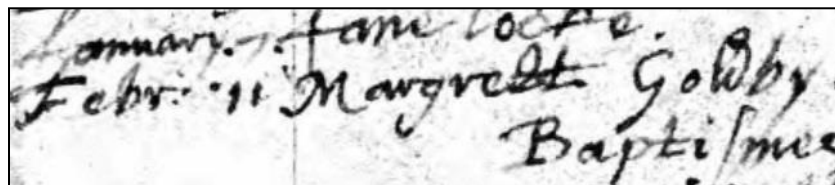 January. 7. Jane Locke.
Febr: 11 Margrett Goldby
Baptiſmes